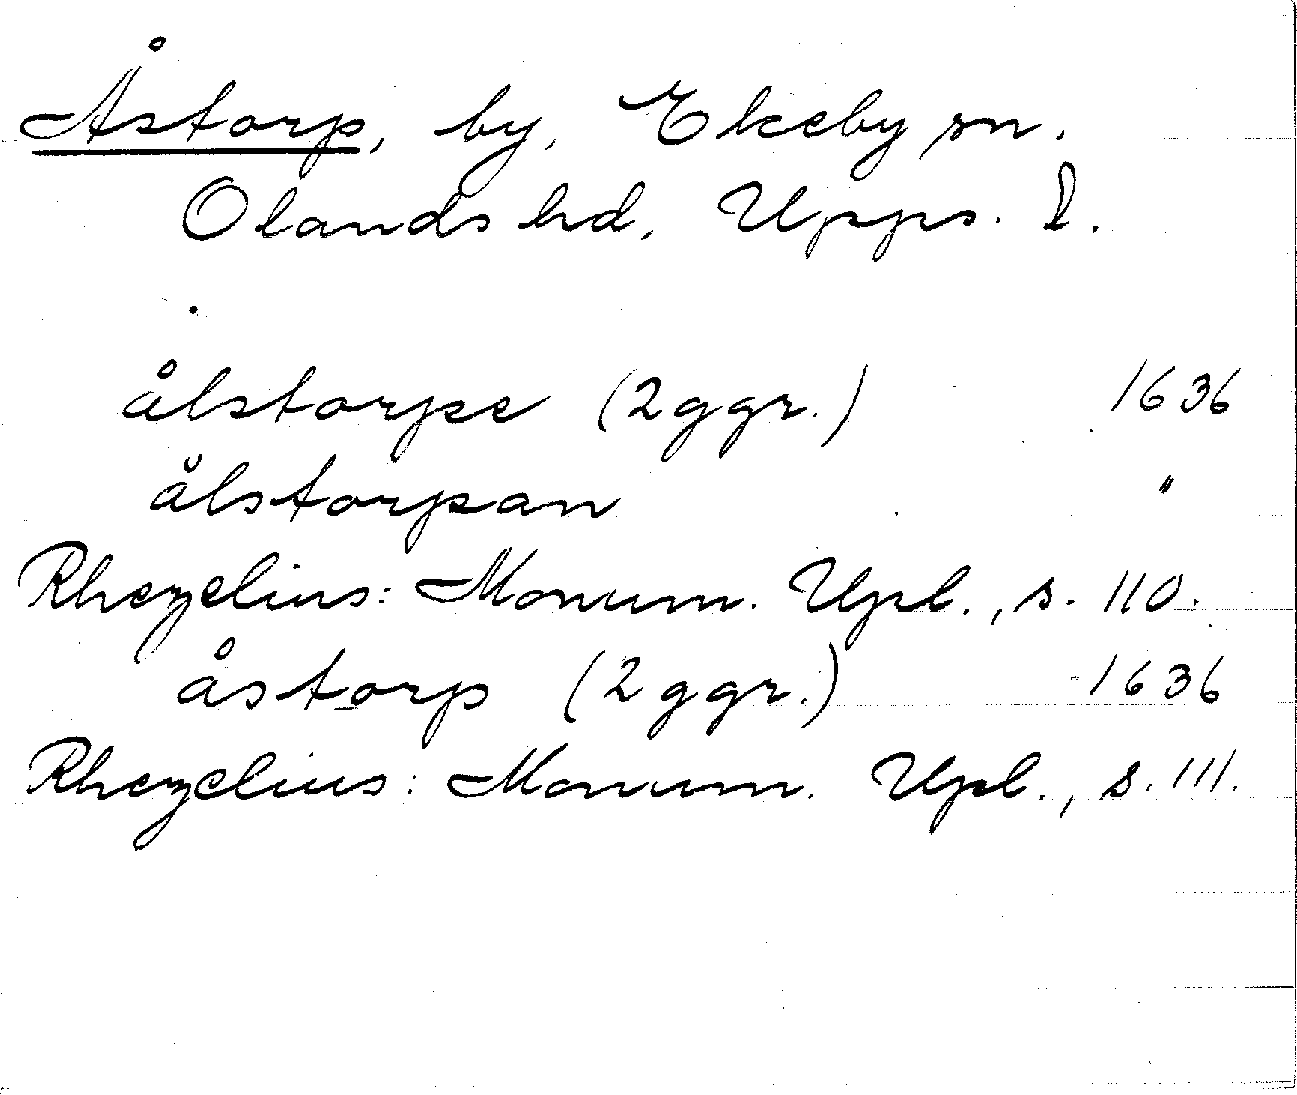 Åstorp, by, Ekeby sn.
Olands hd, Upps. l.
ålstorpe (2ggr.) 1636
ålstorpan "
Rhezelius: Monum. Upl., s. 110.
åstorp (2ggr.) 1636
Rhezelius: Monum. Upl., s. 111.